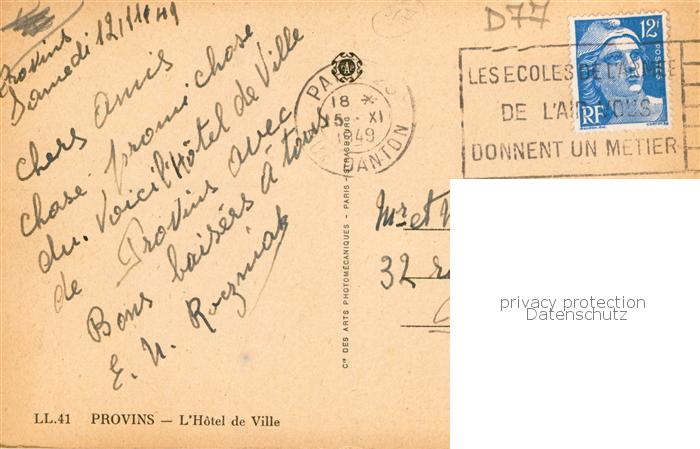 Provins
Samedi 12/11/49
Chers Amis
Chose promi chose
du. Voici l'Hôtel de Ville
de Provins avec
Bons baisers à tous
E. N.
D77
12F
POSTES
RF
LES ECOLES DE L'ARMEE
DE L'AIR VOUS
DONNENT UN METIER
18 *
15 - XI
1949
DANTON
Cie DES ARTS PHOTOMÉCANIQUES - PARIS - STRASBOURG
Mr et
32
privacy protection
Datenschutz
LL.41 PROVINS — L'Hôtel de Ville